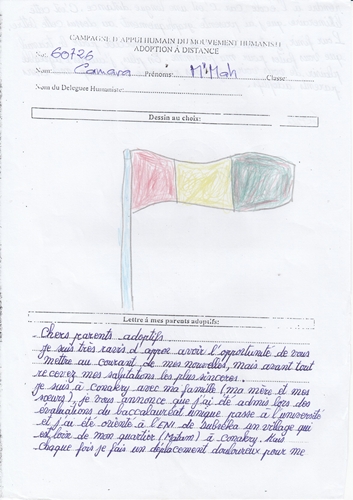 CAMPAGNE D'APPUI HUMAIN DU MOUVEMENT HUMANISTE
ADOPTION À DISTANCE
No: 60726
Nom: Camara Prénoms: M'Mah Classe:
Nom du Delegues Humaniste:
Dessin au choix:
Lettre à mes parents adoptifs:
Chers parents adoptifs
je suis très ravis d'avoir l'opportunité de vous
mettre au courant de mes nouvelles, mais avant tout
recevez mes salutations les plus sinceres.
je suis à conakry avec ma famille (ma mère et mes
sœurs), je vous annonce que j'ai été admis lors des
évaluations du baccalauréat unique passe à l'université
et j'ai été orienté à l'ENI de un village qui
est loin de mon quartier (Matam) à conakry. Mais
chaque fois je fais un déplacement douloureux pour me